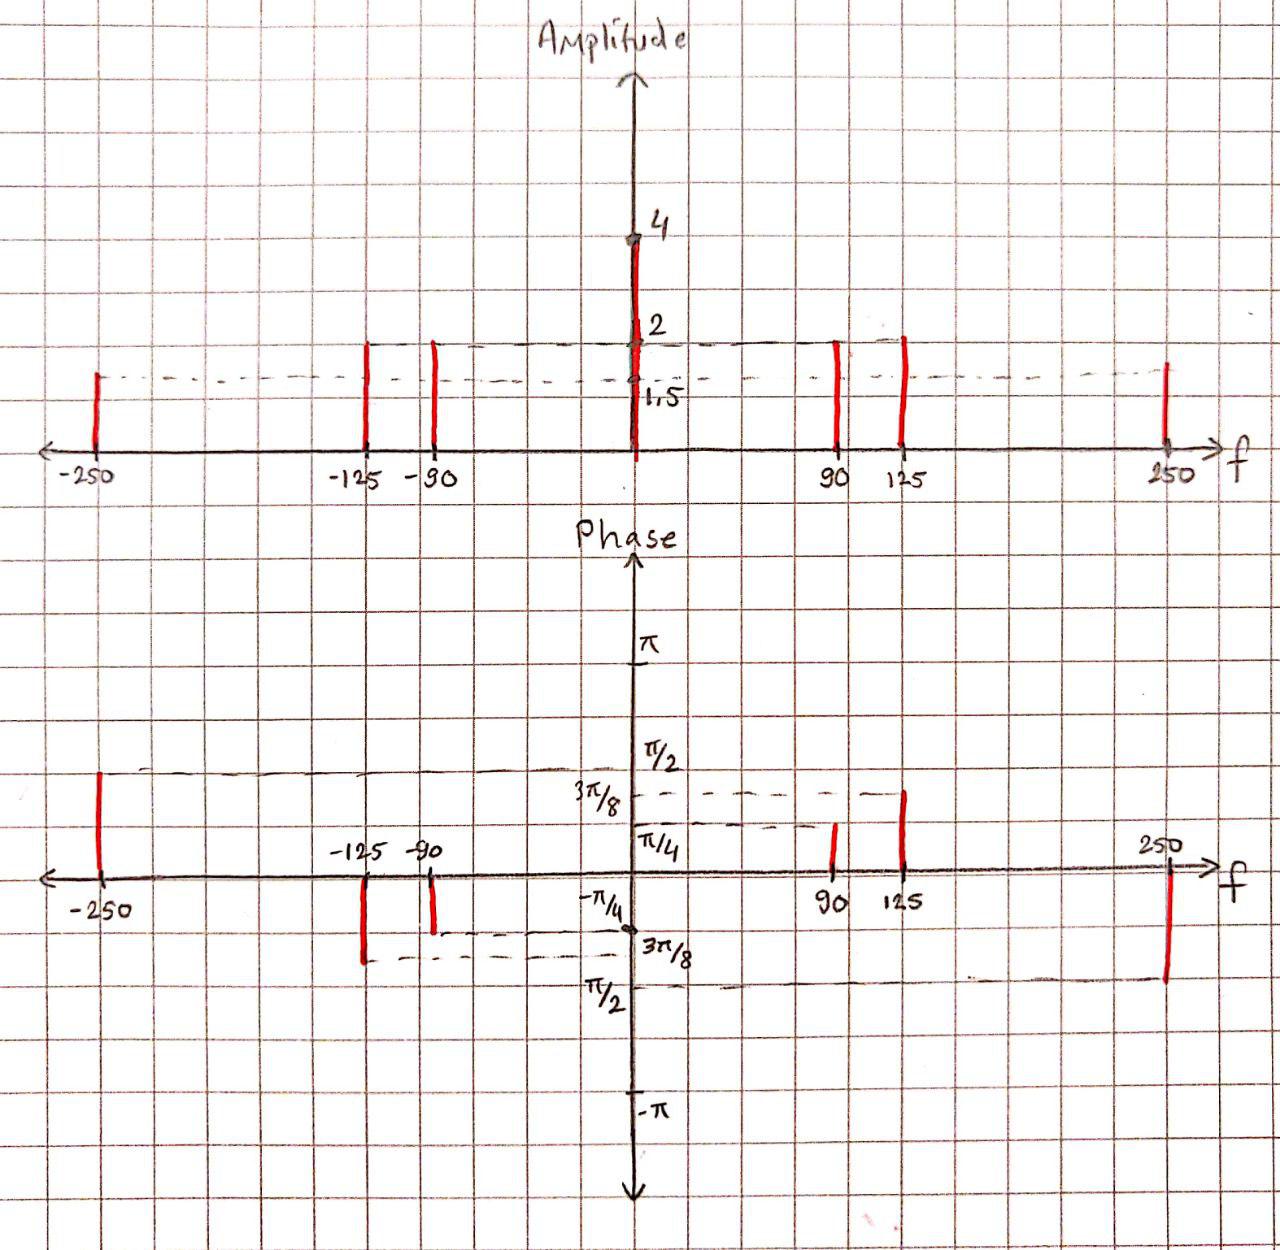 Amplitude
4
2
1,5
-250 -125 -90 90 125 250 f
Phase
π
π/2
3π/8
π/4
-125 -90 250
-250 -π/4 90 125 f
3π/8
π/2
-π